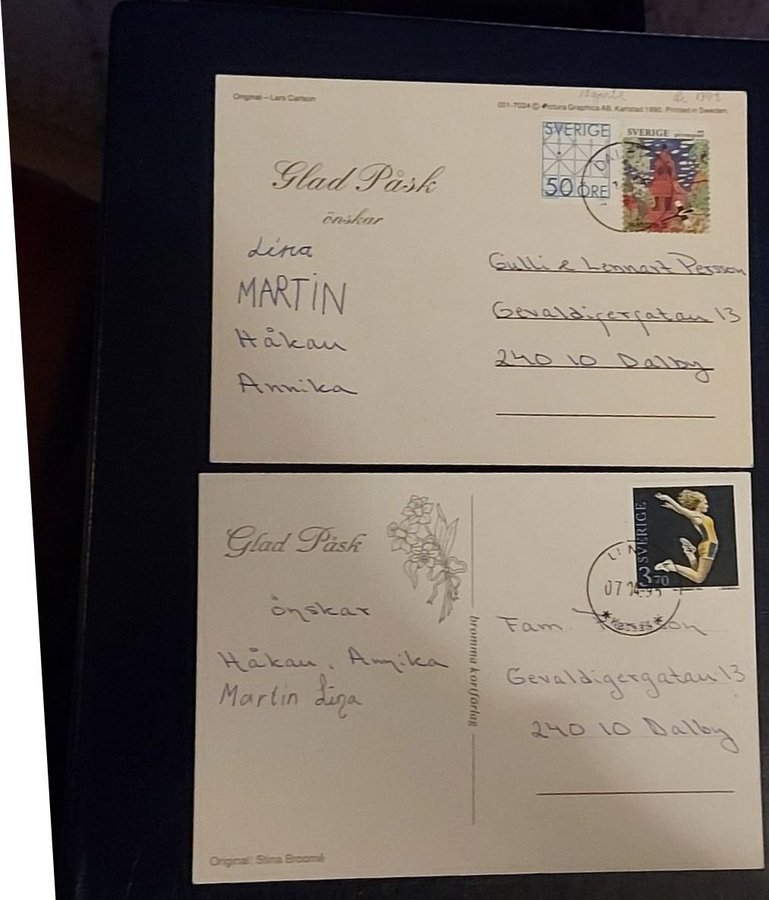 Original – Lars Carlson
10 april
1993
001-7024 © Pictura Graphica AB, Karlstad 1990. Printed in Sweden.
SVERIGE
50 ÖRE
SVERIGE
Glad Påsk
önskar
Lina
MARTIN
Håkan
Annika
Gulli & Lennart Persson
Gevaldigergatan 13
240 10 Dalby
Glad Påsk
önskar
Håkan, Annika
Martin Lina
Original: Stina Broomé
bromma kortförlag
SVERIGE
3.70
Fam. Persson
Gevaldigergatan 13
240 10 Dalby